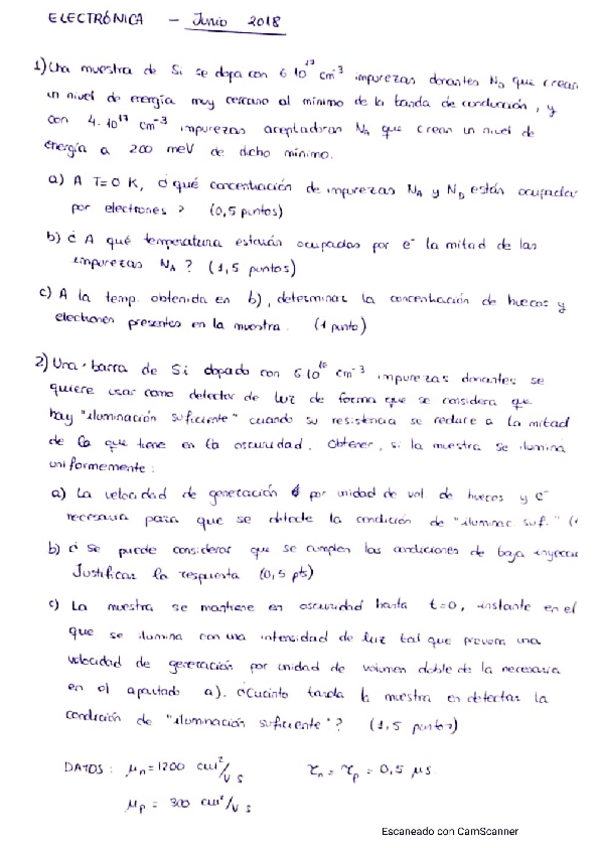 ELECTRÓNICA - Junio 2018
1) Una muestra de Si se dopa con 6 10¹⁷ cm⁻³ impurezas donantes N_D que crean
un nivel de energía muy cercano al mínimo de la banda de conducción, y
con 4·10¹⁷ cm⁻³ impurezas aceptadoras N_A que crean un nivel de
energía a 200 meV de dicho mínimo.
a) A T=0 K, ¿qué concentración de impurezas N_A y N_D están ocupadas
por electrones? (0,5 puntos)
b) ¿A qué temperatura estarán ocupados por e⁻ la mitad de las
impurezas N_A? (1,5 puntos)
c) A la temp. obtenida en b), determinar la concentración de huecos y
electrones presentes en la muestra. (1 punto)
2) Una barra de Si dopado con 6 10¹⁰ cm⁻³ impurezas donantes se
quiere usar como detector de luz de forma que se considera que
hay "iluminación suficiente" cuando su resistencia se reduce a la mitad
de la que tiene en la oscuridad. Obtener, si la muestra se ilumina
uniformemente:
a) La velocidad de generación por unidad de vol. de huecos y e⁻
necesaria para que se detecte la condición de "iluminac suf." (1
b) ¿se puede considerar que se cumplen las condiciones de baja inyecci
Justificar la respuesta (0,5 pts)
c) La muestra se mantiene en oscuridad hasta t=0, instante en el
que se ilumina con una intensidad de luz tal que provoca una
velocidad de generación por unidad de volumen doble de la necesaria
en el apartado a). ¿Cuánto tarda la muestra en detectar la
condición de "iluminación suficiente"? (1,5 puntos)
DATOS: μn = 1200 cm²/V s τn = τp = 0,5 μs
μp = 300 cm²/V s
Escaneado con CamScanner